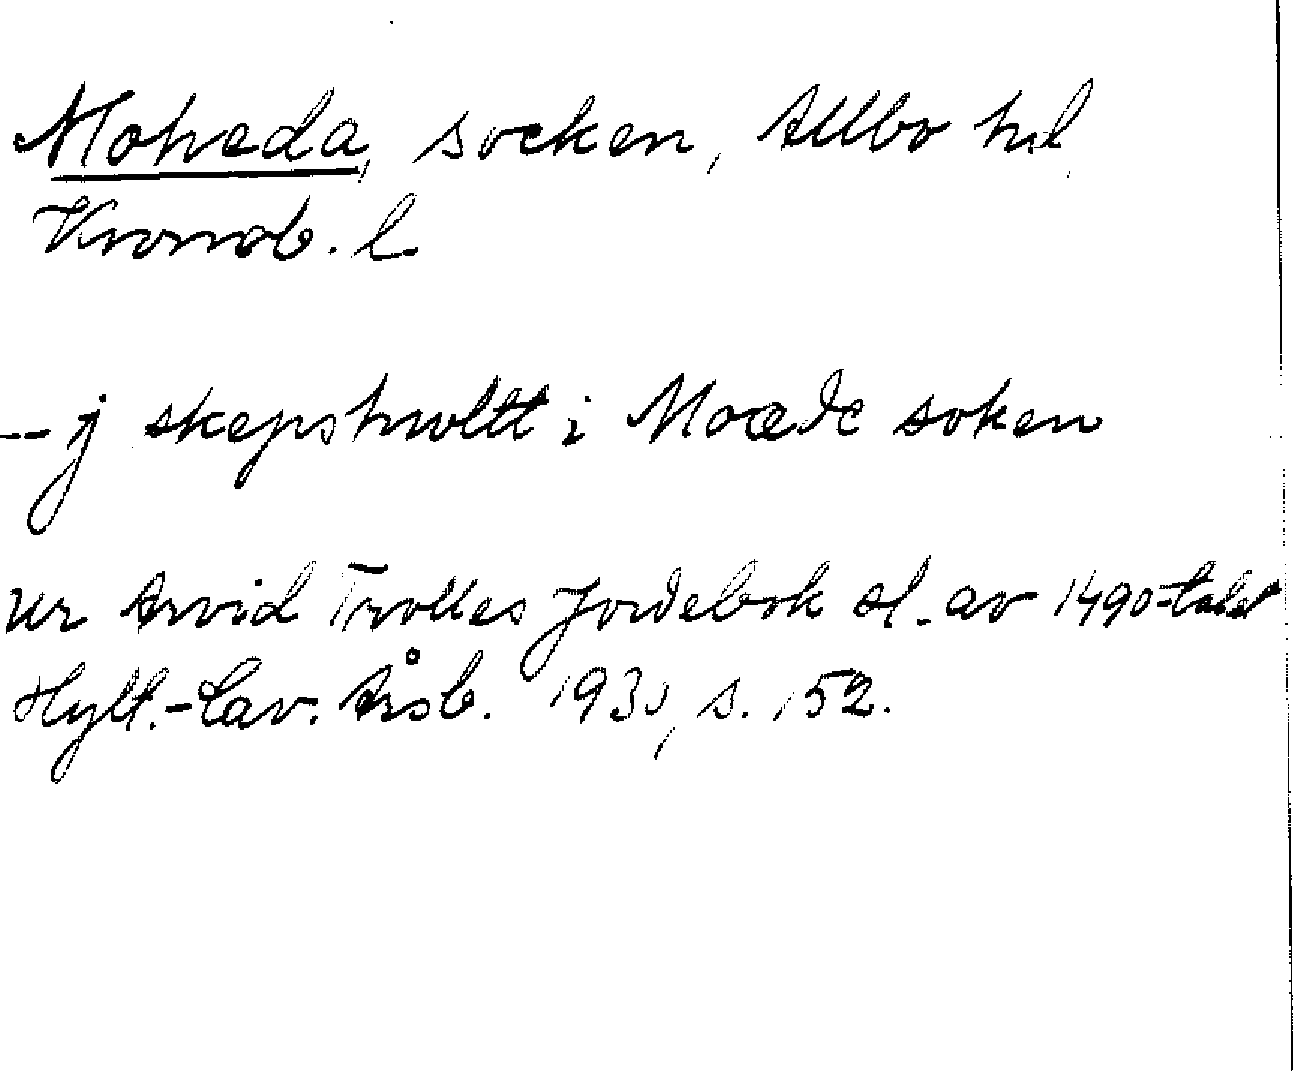 Moheda, socken, Allbo hd,
Kronob. l
-- j skepshwltt i Moæde soken
ur Arvid Trolles Jordebok sl. av 1490-talet
Hylt.-Cav. Årsb. 1930, s. 152.